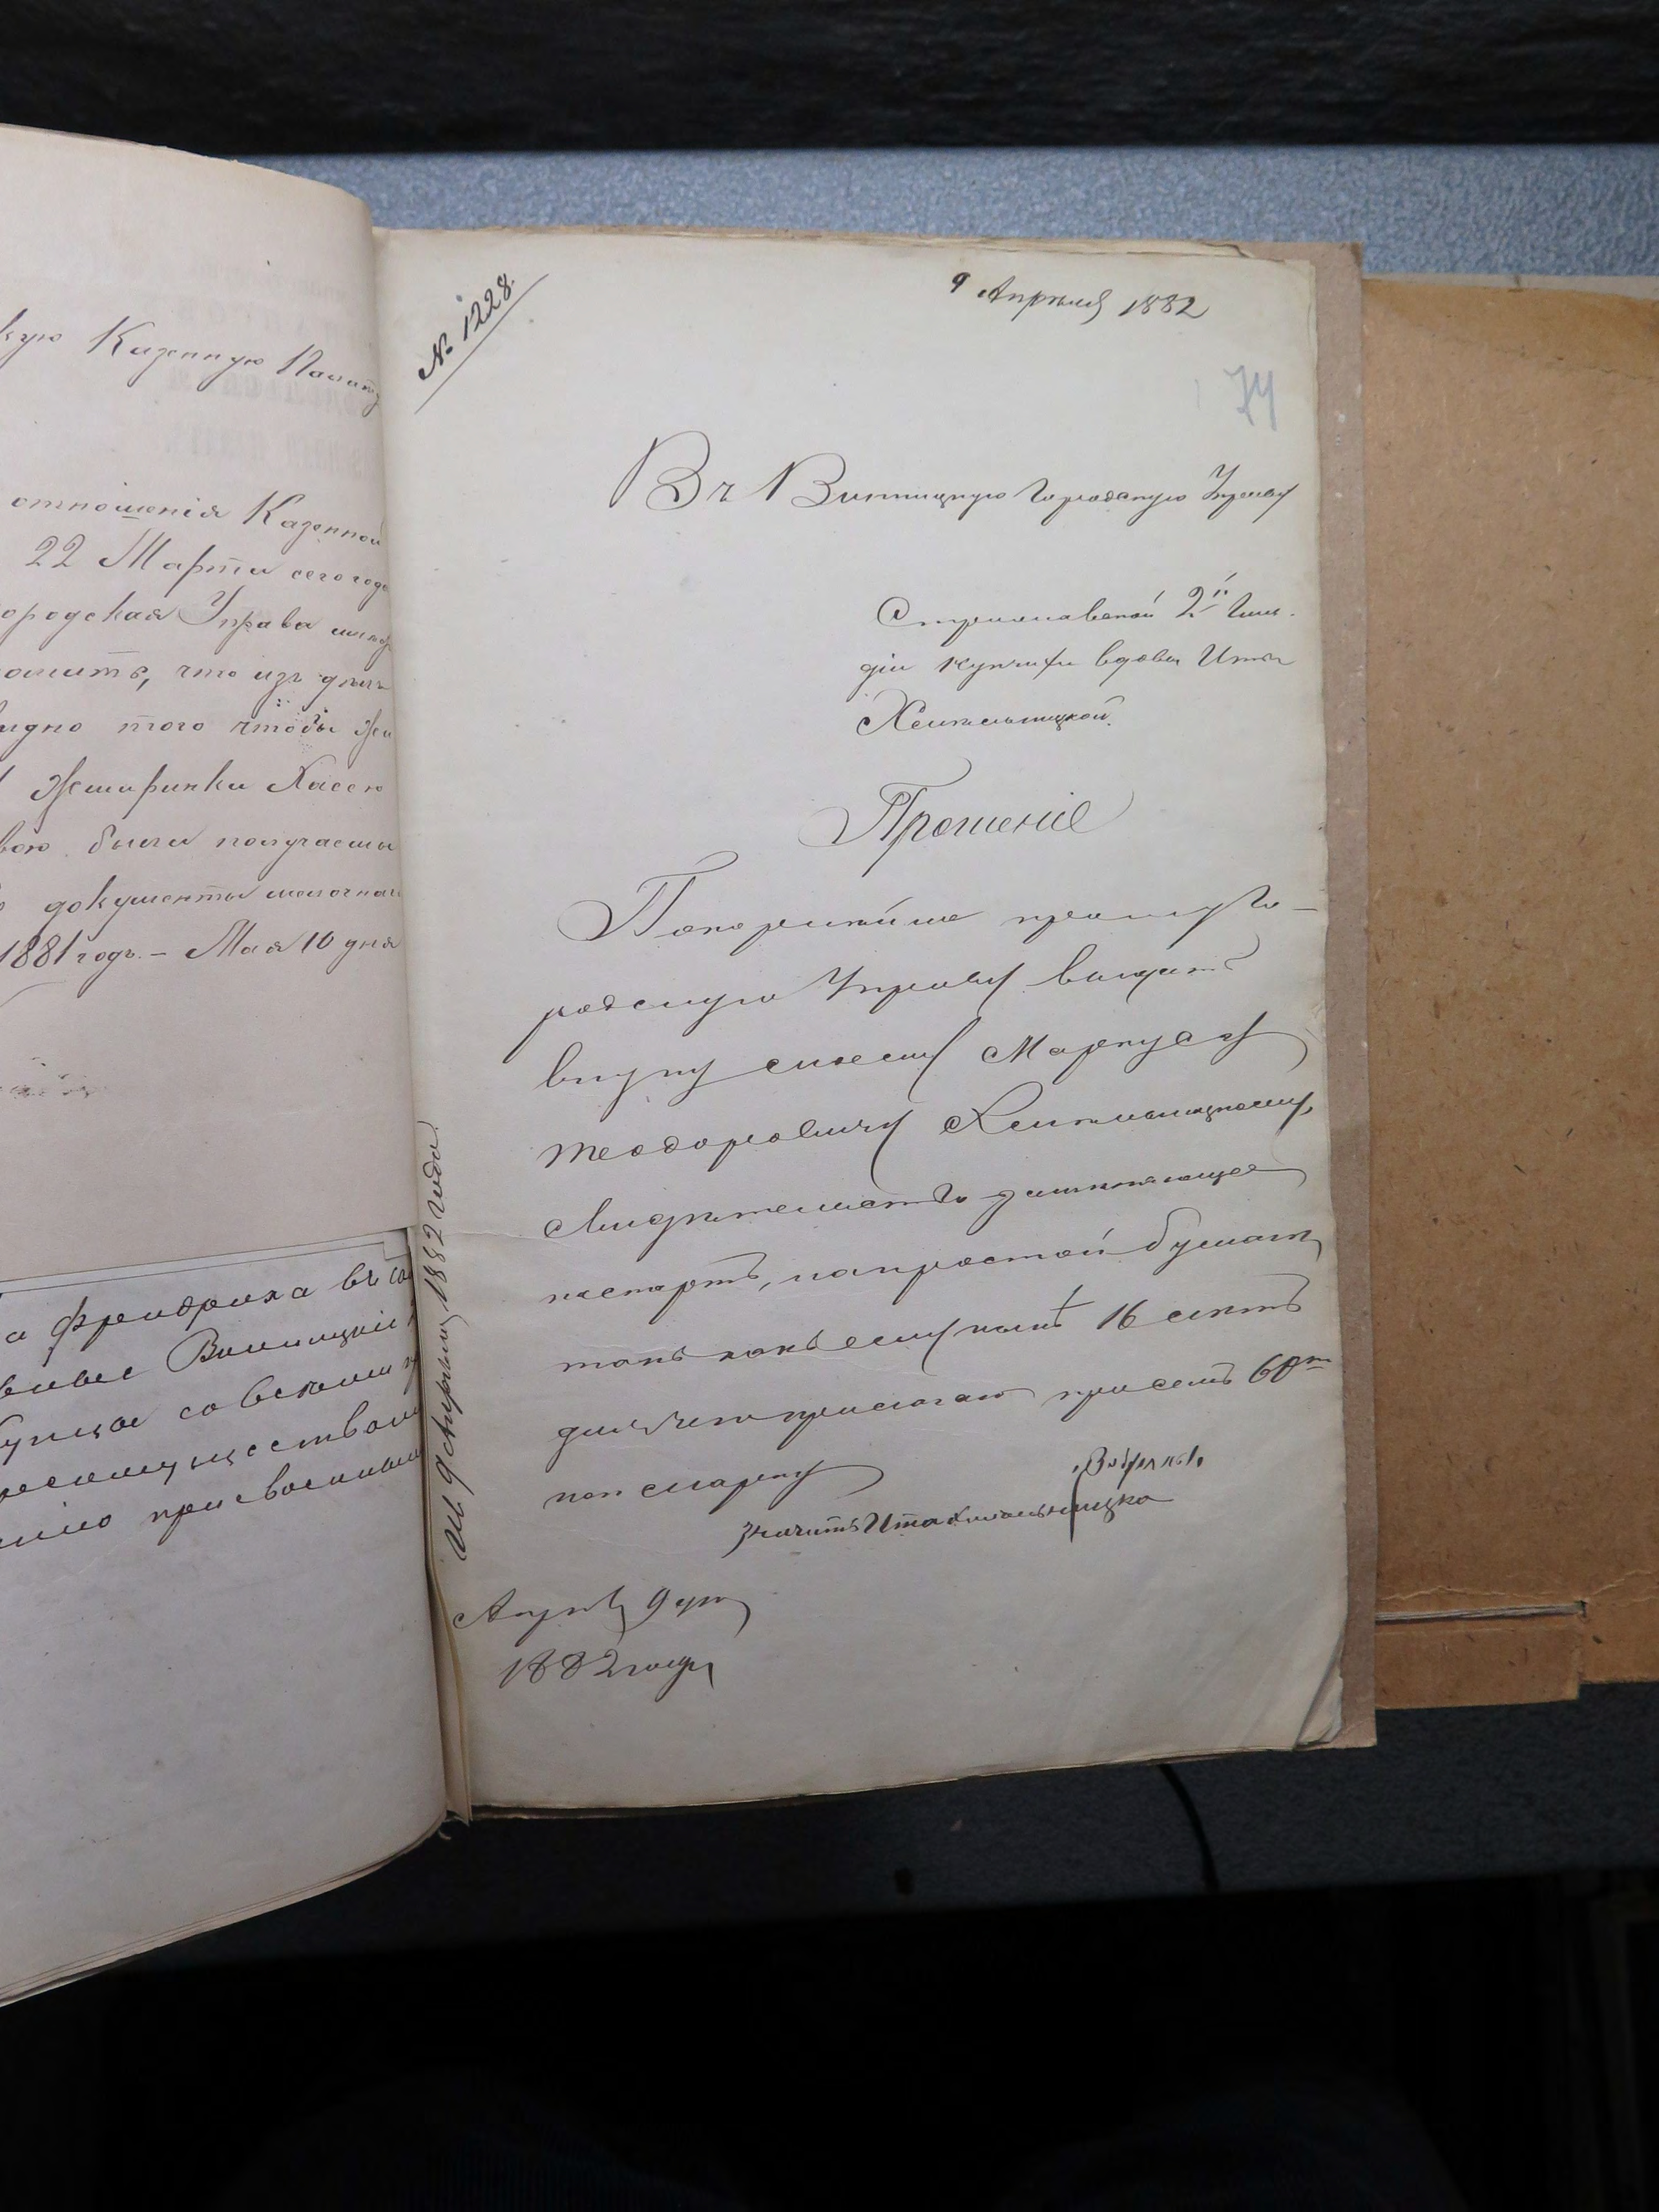 кую Казенную Палату
отношенія Казенной
22 Марта сего года
ородская Управа
что изъ
видно того чтобы
Жмиринки Хасею
вою были получаемы
документы
1881 годъ. – Мая 10 дня
а Фридриха въ
Винницкій
купца со всеми
преимуществами
присвоенными
№ 1228.
9 Апреля 1882
74
Въ Винницкую Городскую Управу
2й Гиль-
діи купчихи вдовы Иты
Хмельницкой.
Прошеніе
Покорнейше прошу Го-
родскую Управу выдать
внуку моему Маркусу
Теодоровичу Хмельницкому,
свидетельство заменяющее
паспортъ, на простой бумаге,
такъ какъ ему ныне 16 летъ
для чего прилагаю при семъ 60ти
коп марку
Значитъ Ита Хмельницка
Апреля 9 дня
1882 года
9 Апреля 1882 года.